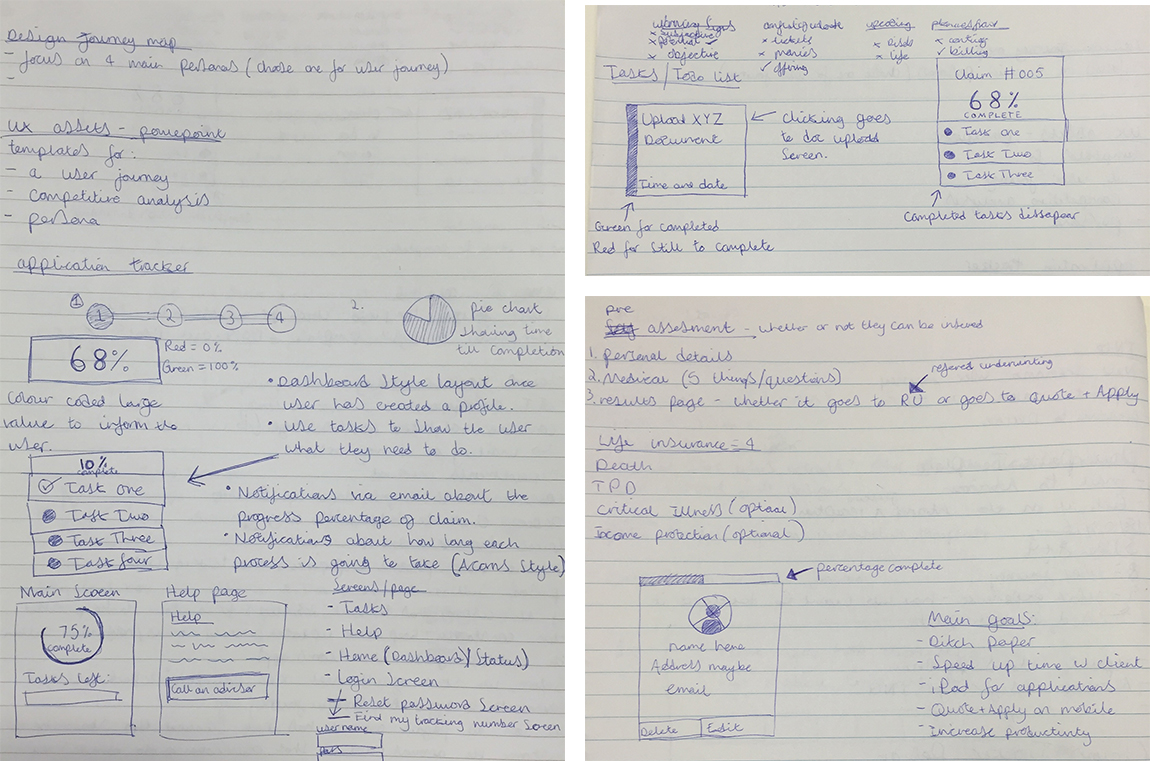 Design Journey map
- focus on 4 main personas (choose one for user journey)
-
UX assets - powerpoint
templates for:
- a user journey
- competitive analysis
- persona
application tracker
1
1 2 3 4
68%
Red = 0%
Green = 100%
Colour coded large
value to inform the
user.
2.
pie chart
showing time
till completion
• Dashboard style layout once
user has created a profile.
• use tasks to show the user
what they need to do.
10%
complete
Task one
Task Two
Task Three
Task four
• Notifications via email about the
progress percentage of claim.
• Notifications about how long each
process is going to take (Acorns Style)
Main Screen
75%
complete
Tasks left:
Help page
Help
Call an advisor
Screens/page
- Tasks
- Help
- Home (Dashboard/Status)
- Login Screen
- Reset password Screen
- Find my tracking number Screen
username
pass
warning signs
x potential
x objective
x tickets
x movies
✓ offering
upcoming
x life
x
✓ billing
Tasks/Todo list
Upload XYZ
Document
Time and date
Clicking goes
to doc upload
Screen.
Green for completed
Red for still to complete
Claim #005
68%
COMPLETE
Task one
Task Two
Task Three
Completed tasks dissapear
pre
assesment - whether or not they can be insured
1. Personal details
2. Medical (5 things/questions)
refered underwriting
3. results page - whether it goes to RU or goes to Quote + Apply
Life insurance = 4
Death
TPD
Critical Illness (optional)
Income protection (optional)
percentage complete
name here
Address maybe
email
Delete Edit
Main goals:
- Ditch paper
- Speed up time w client
- iPad for applications
- Quote + Apply on mobile
- Increase productivity